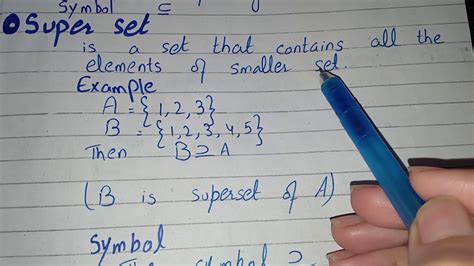 Symbol ⊆
• Super set
is a set that contains all the
elements of smaller set.
Example
A = {1, 2, 3}
B = {1, 2, 3, 4, 5}
Then B ⊇ A
(B is superset of A)
Symbol
The symbol ⊇